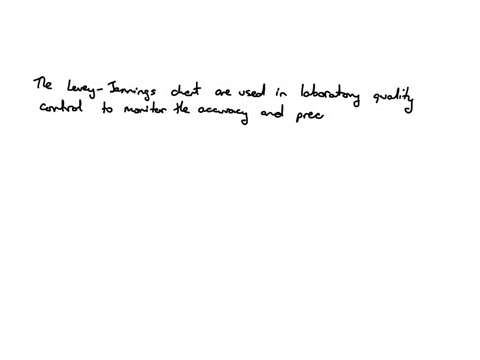 The Levey-Jennings chart are used in laboratory quality
control to monitor the accuracy and prec